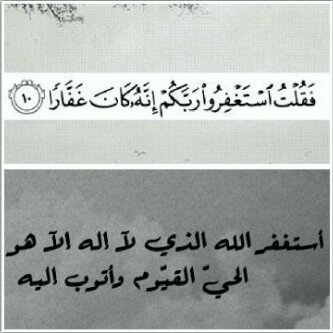 فَقُلْتُ ٱسْتَغْفِرُوا۟ رَبَّكُمْ إِنَّهُۥ كَانَ غَفَّارًا ١٠
أستغفر الله الذي لآ إله إلآ هو
الحيّ القيّوم وأتوب إليه